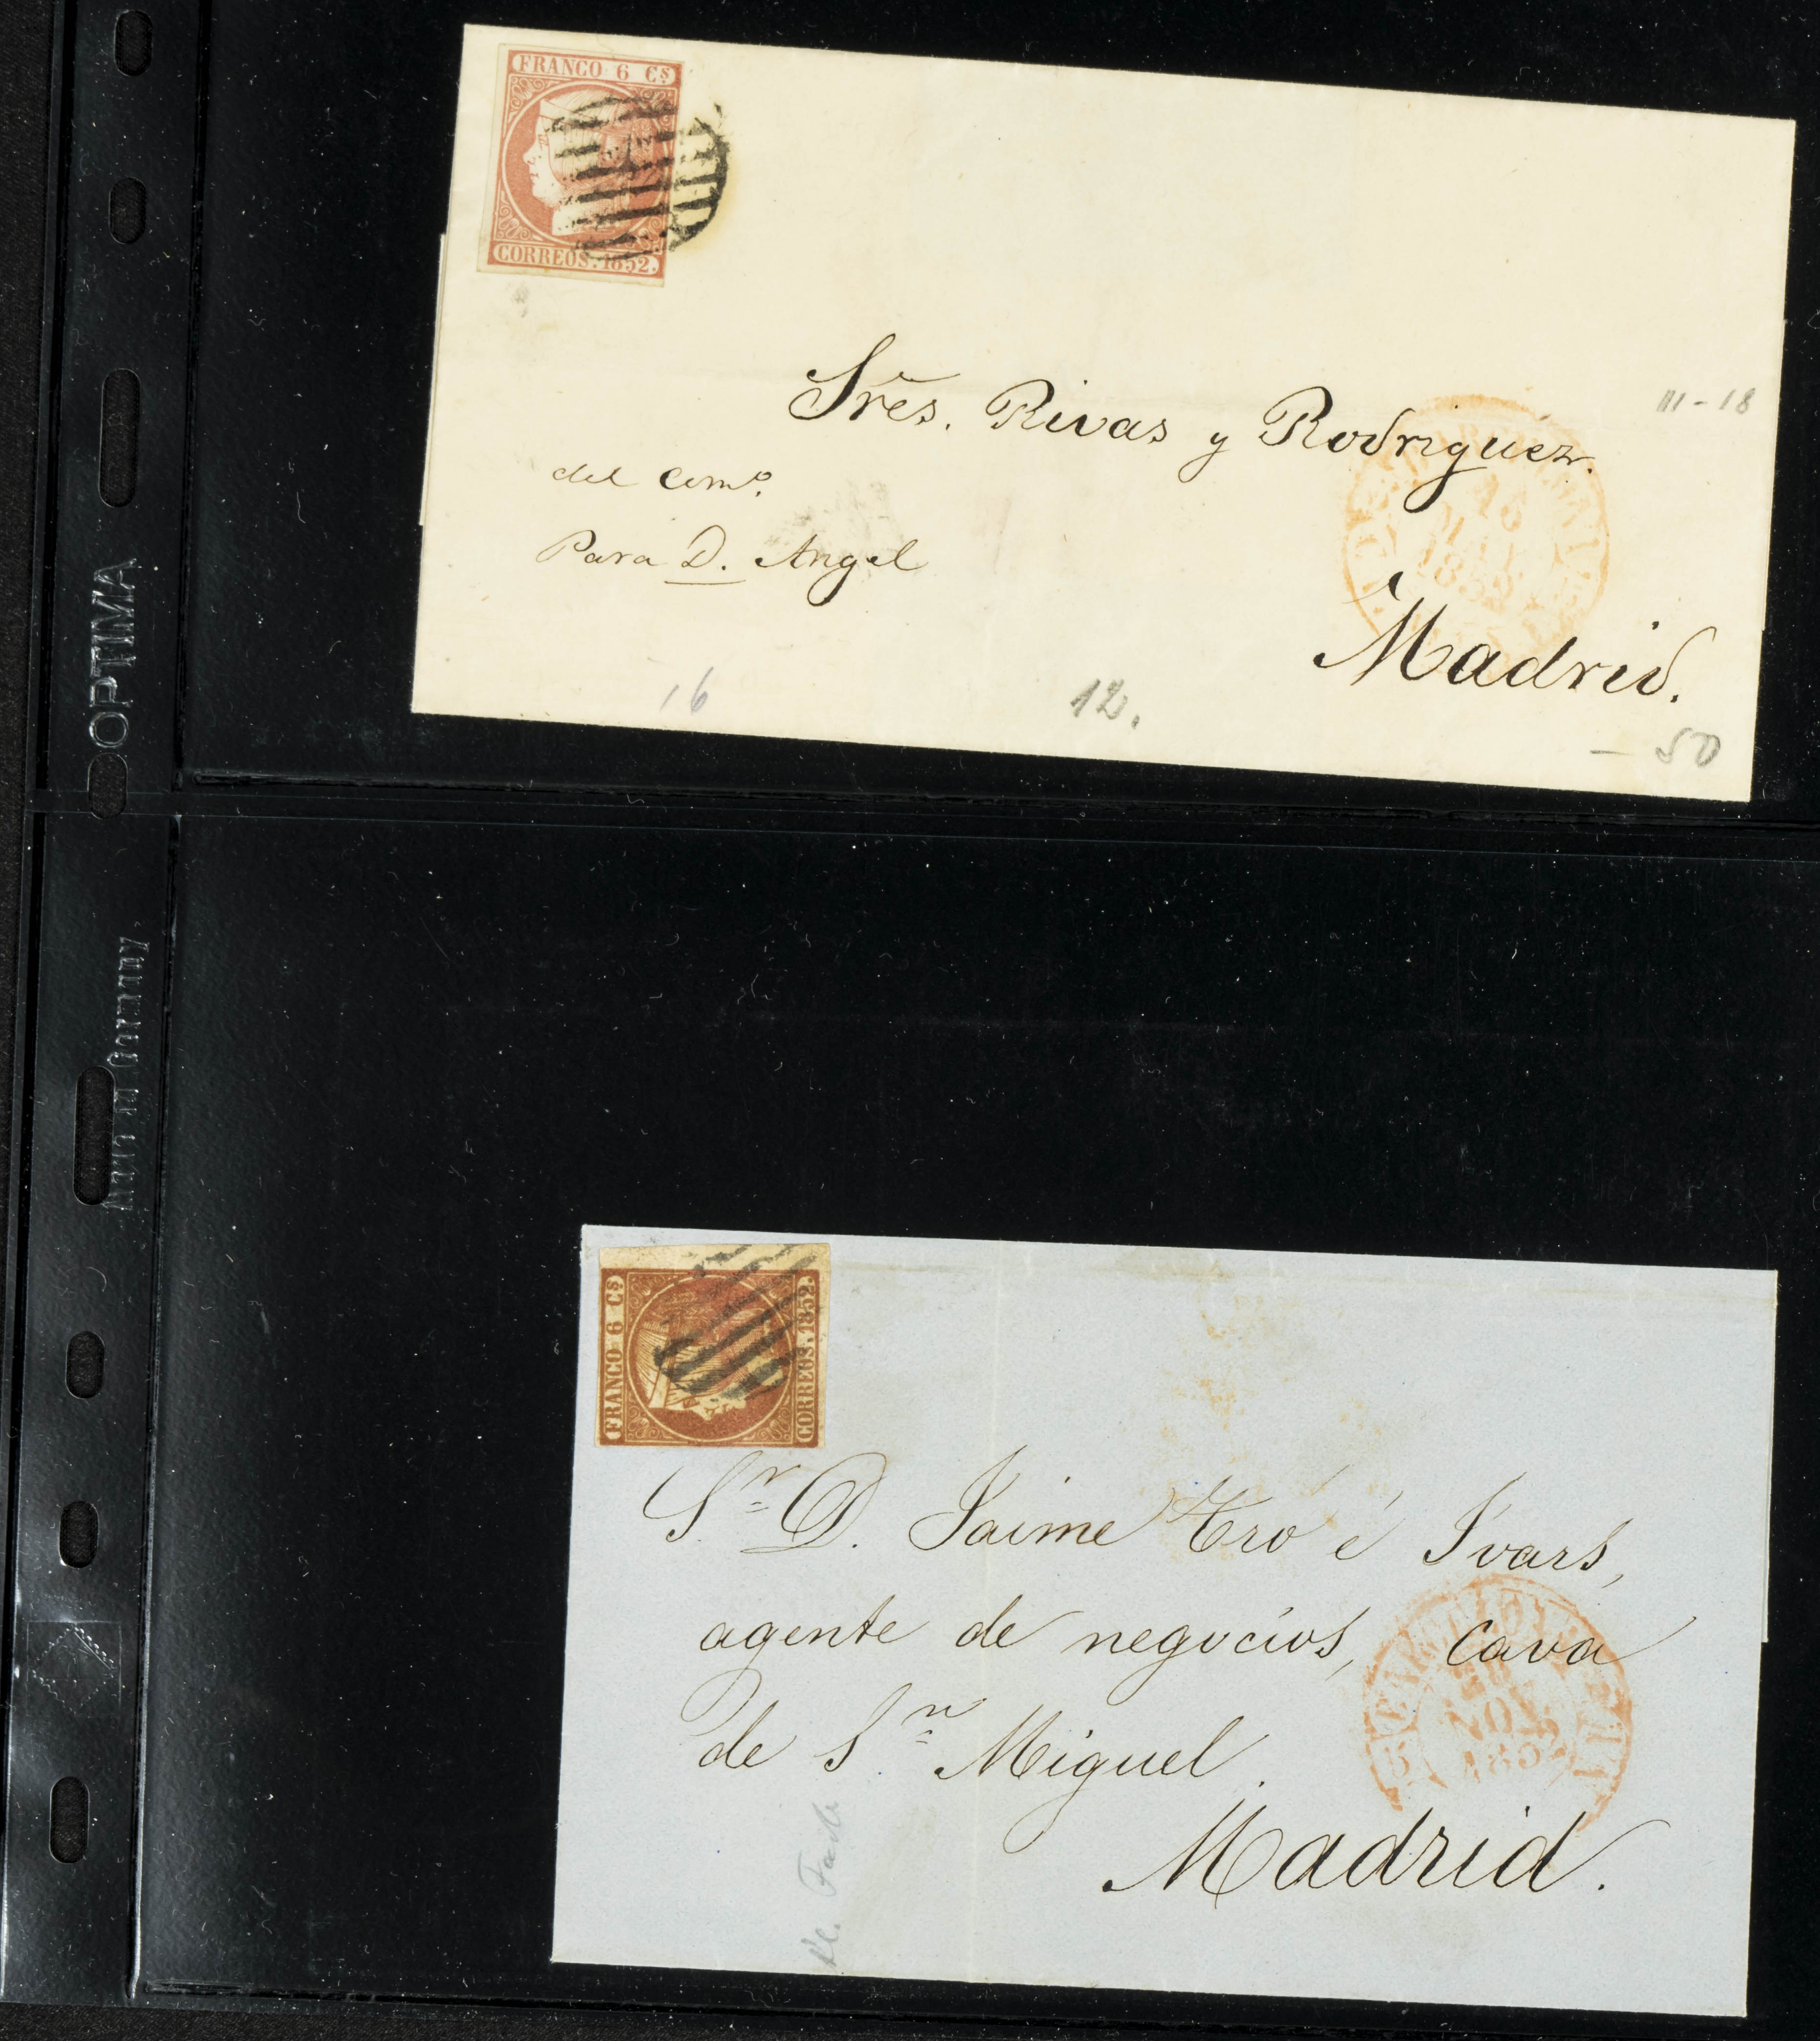 FRANCO 6 Cs
CORREOS. 1852.
Sres. Rivas y Rodriguez.
III-18
del Como.
Para D. Angel
Madrid.
16
12.
- 50
OPTIMA
Made in Germany
FRANCO 6 Cs
CORREOS. 1852.
Sr. D. Jaime Tro é Ivars,
agente de negocios, Cava
de Sn. Miguel.
Madrid.
NOV
1852